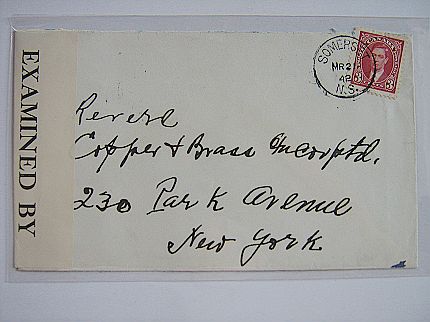 EXAMINED BY
SOMERS
MR 2
42
N.S.
CANADA
3 3
Revere
Copper & Brass Incorptd.
230 Park Avenue
New York